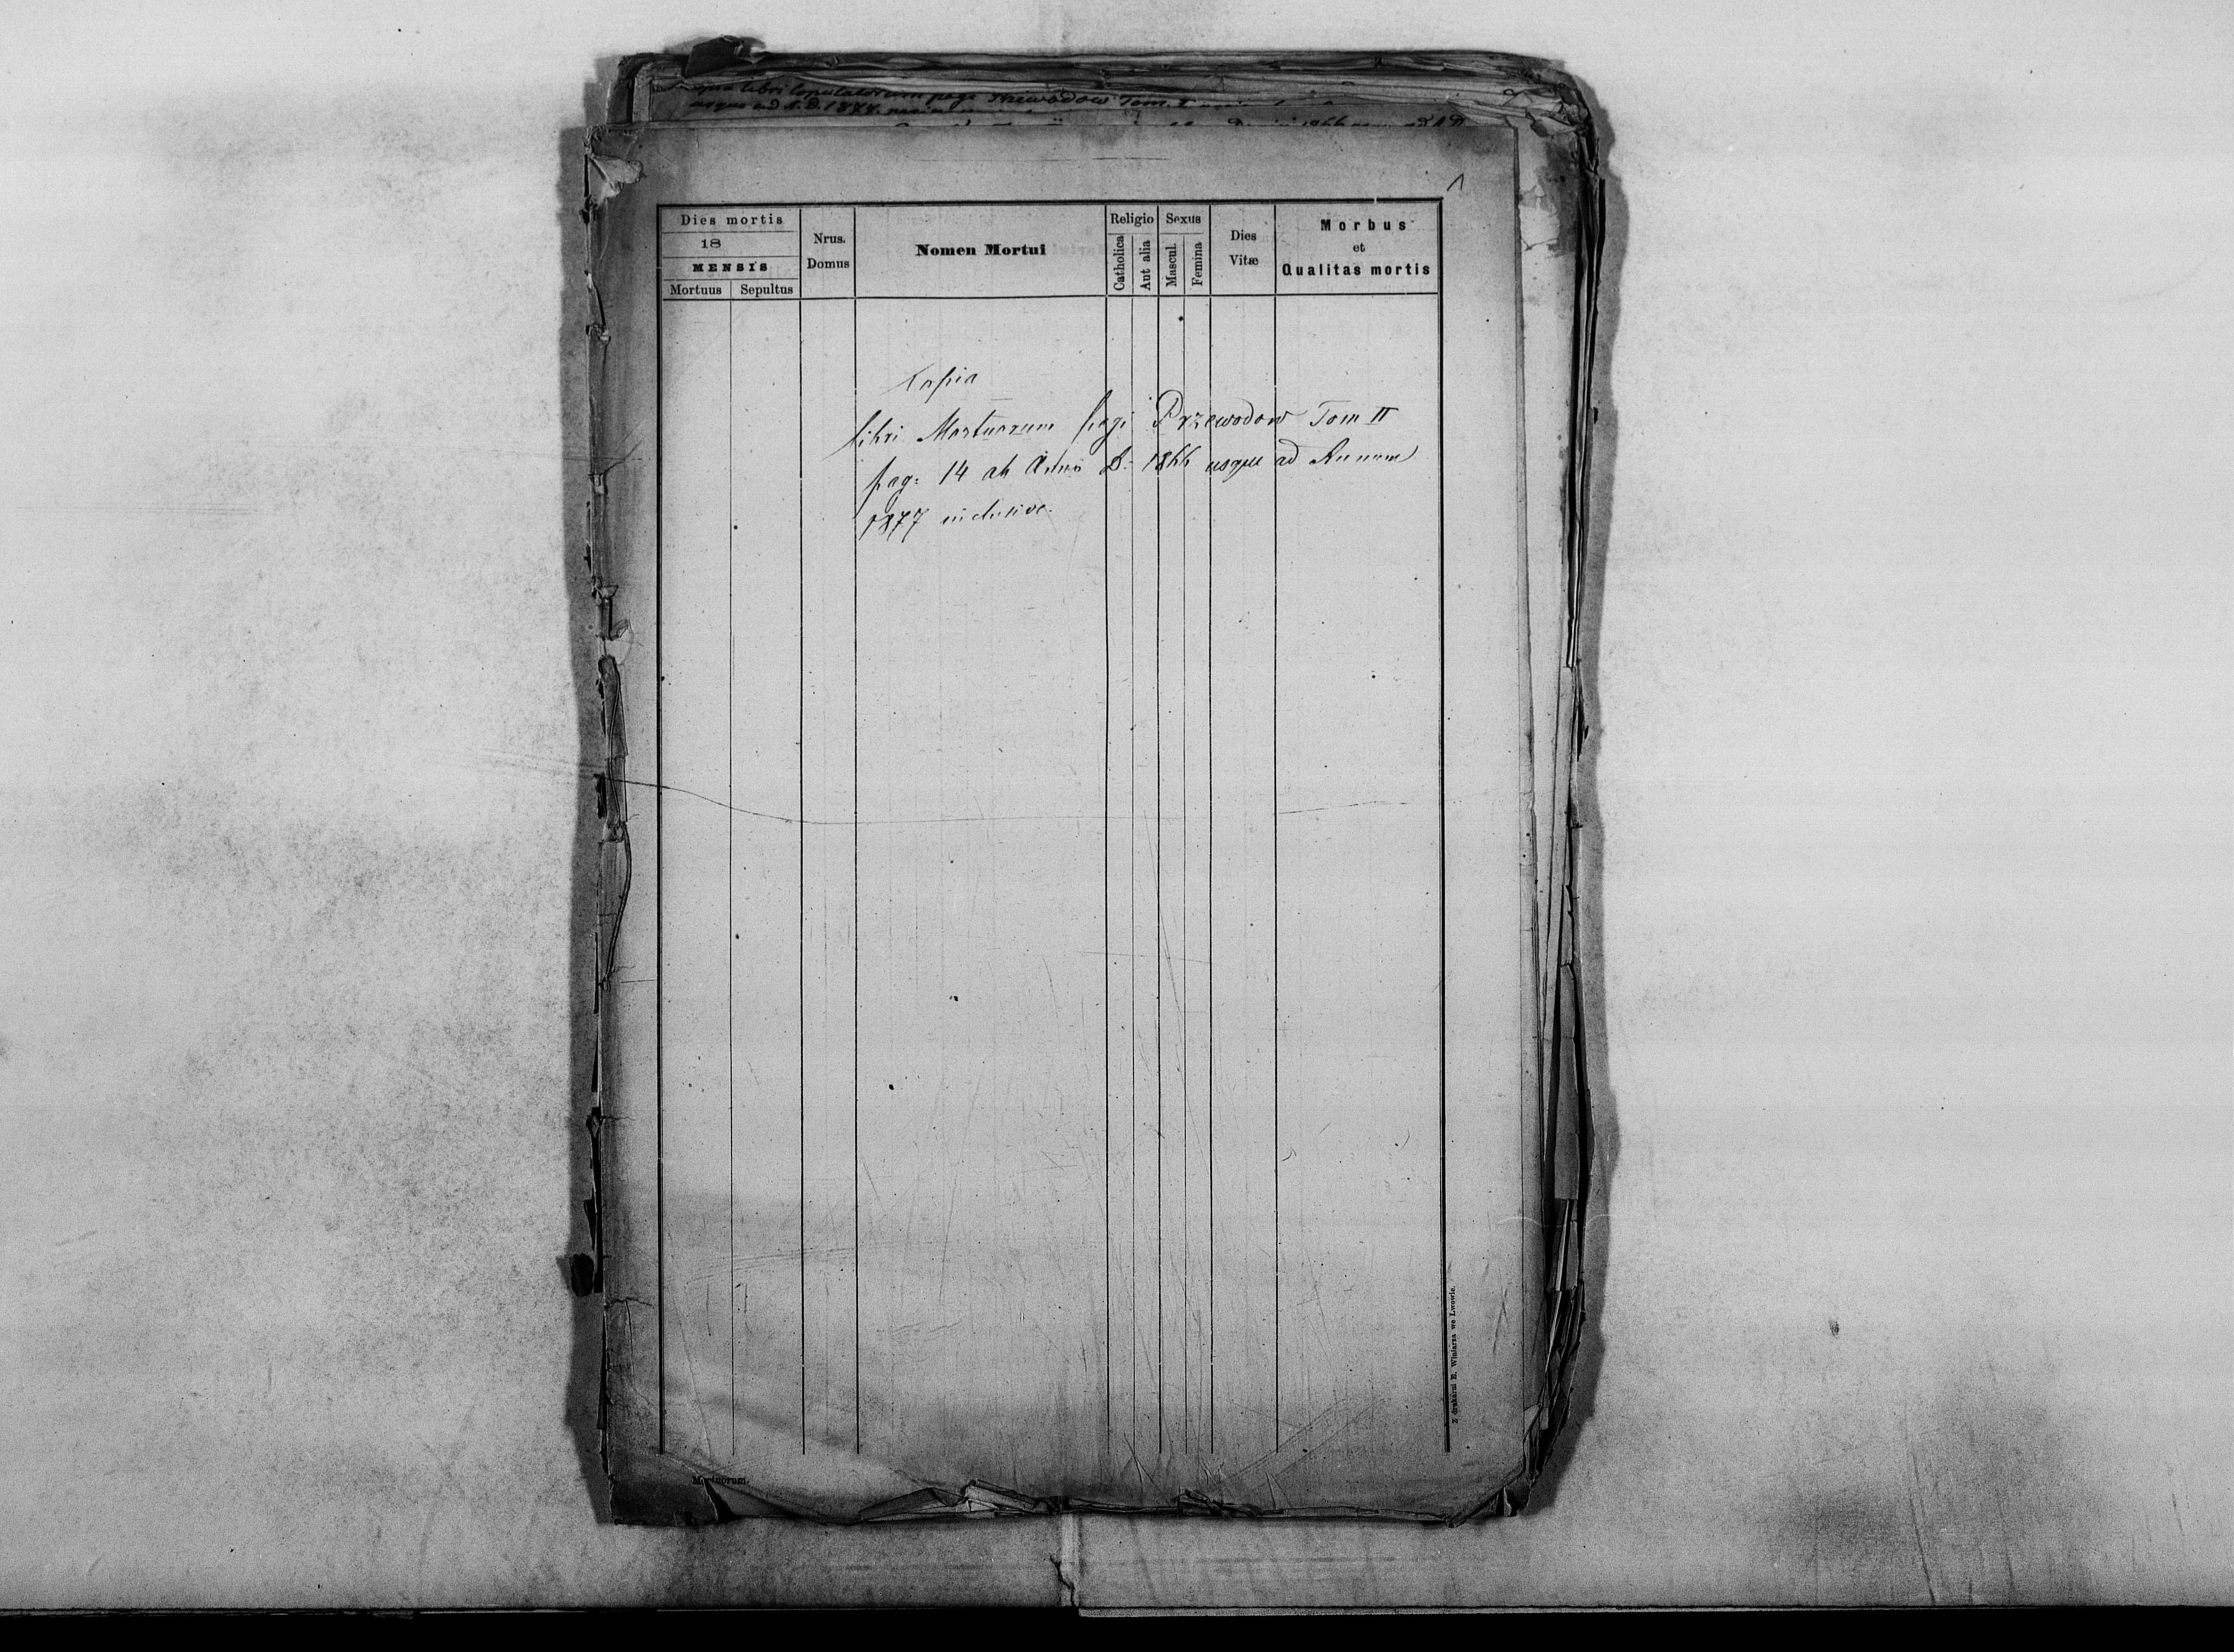 Copia libri Copulatorum pagi Przewodow Tom. I
usque ad A. D. 1877.
1866 usque ad A D
1
Dies mortis
18
MENSIS
Mortuus Sepultus
Nrus. Domus
Nomen Mortui
Religio
Catholica
Aut alia
Sexus
Mascul.
Femina
Dies
Vitæ
Morbus
et
Qualitas mortis
Copia
libri Mortuorum pagi Przewodow Tom II
pag: 14 ab Anno D. 1866 usque ad Annum
1877 inclusive.
Z drukarni E. Winiarza we Lwowie.
Mortuorum.